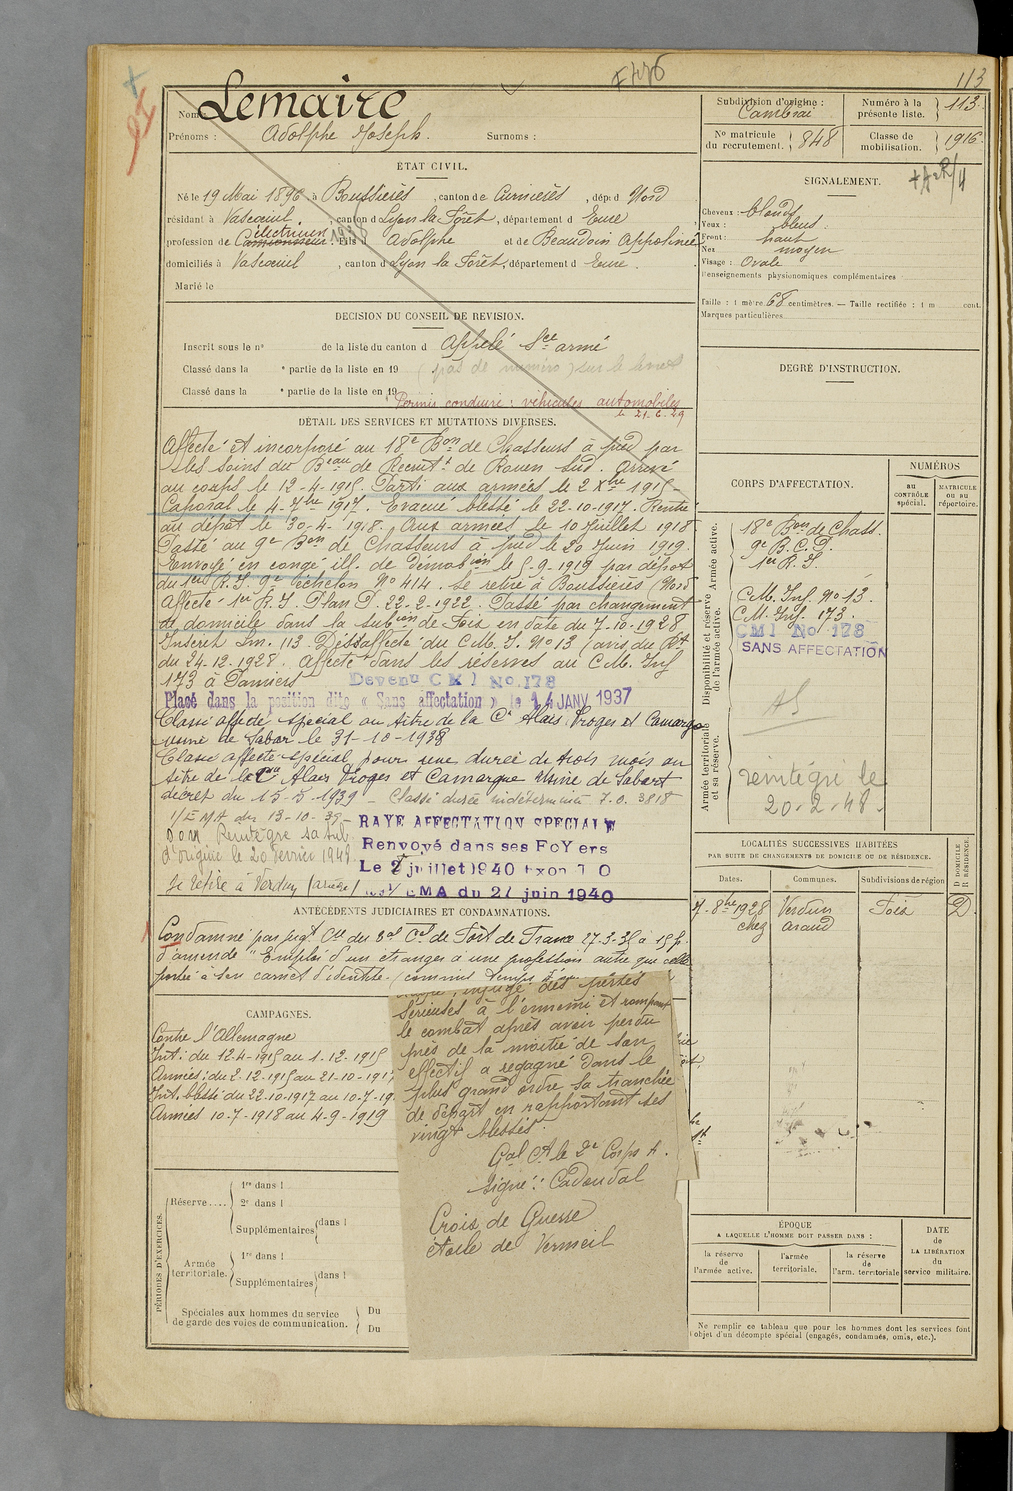 113
Nom : Lemaire
Prénoms : Adolphe Joseph. Surnoms :
ÉTAT CIVIL.
Né le 19 Mai 1896 à Boussières, canton de Carnières, dépt d Nord
résidant à Vascœuil, canton d Lyon la Forêt, département d Eure
électricien 1938
profession de Camionneur. Fils d Adolphe et de Beaudoin Appolinie
domiciliés à Vascœuil, canton d Lyon la Forêt, département d Eure.
Marié le
DÉCISION DU CONSEIL DE REVISION.
Inscrit sous le n° de la liste du canton d Appelé Sce armé
Classé dans la ° partie de la liste en 19 (pas de numéro) sur le livret
Classé dans la ° partie de la liste en 19
Permis conduire : véhicules automobiles
le 21.6.29
DÉTAIL DES SERVICES ET MUTATIONS DIVERSES.
Affecté et incorporé au 18e Bon de Chasseurs à pied par
les soins du Beau de Recrutt de Rouen Sud. Arrivé
au corps le 12-4-1915. Parti aux armées le 2 Xbre 1915
Caporal le 4-7bre 1917. Evacué blessé le 22-10-1917. Rentré
au dépôt le 30-4-1918. Aux armées le 10 Juillet 1918
Passé au 9e Bon de Chasseurs à pied le 20 Juin 1919.
Envoyé en congé ill. de démobion le 5-9-1919 par dépôt
du 1er R.I. 9e échelon No 414. Se retire à Boussières (Nord
Affecté 1er R.I. Plan P. 22-2-1922. Passé par changement
de domicile dans la subion de Foix en date du 7-10-1928
Inscrit Lm. 113. Désaffecté du C.M.I. No 13 (avis du Rt
du 24-12-1928. Affecté dans les réserves au C.M. Inf
173 à Pamiers Devenu CMI No 178
Placé dans la position dite « Sans affectation » le 14 JANV 1937
Classé affecté spécial au titre de la Cie Alais Froges et Camargue
usine de Sabar le 31-10-1938
Classé affecté spécial pour une durée de trois mois au
titre de la Cie Alais Froges et Camargue Usine de Sabart
décret du 15-5-1939 - Classé durée indéterminée J.O. 3818
I/EMA du 13-10-39-
Réintègre sa sub.
d'origine le 20 février 1948
Se retire à Verdun (ariège)
RAYE AFFECTATION SPECIALE
Renvoyé dans ses FoYers
Le 2 juillet 1940
EMA du 27 juin 1940
ANTÉCÉDENTS JUDICIAIRES ET CONDAMNATIONS.
Condamné par jugt
d'amende "Emploi d'un étranger à une profession autre que celle
portée à son carnet d'identité.
CAMPAGNES.
Contre l'Allemagne
Int : du 12-4-1915 au 1-12-1915
Armées : du 2-12-1915 au 21-10-1917
Int. blessé du 22-10-1917 au 10-7-19
Armées 10-7-1918 au 4-9-1919
infligé des pertes
sérieuses à l'ennemi et rompant
le combat après avoir perdu
près de la moitié de son
effectif a regagné dans le
plus grand ordre sa tranchée
de départ en rapportant ses
vingt blessés.
Gal Ct le 2e Corps A.
Signé : Cadoudal
Croix de Guerre
étoile de Vermeil
PÉRIODES D'EXERCICES.
Réserve....
1re dans l
2e dans l
Supplémentaires dans l
Armée territoriale.
1re dans l
Supplémentaires dans l
Spéciales aux hommes du service
de garde des voies de communication.
Du
Du
Subdivision d'origine :
Cambrai
Numéro à la
présente liste. 113.
No matricule
du recrutement. 848
Classe de
mobilisation. 1916
SIGNALEMENT.
Cheveux : blonds
Yeux : bleus.
Front : haut
Nez moyen
Visage : Ovale
Renseignements physionomiques complémentaires
Taille : 1 mètre 68 centimètres. — Taille rectifiée : 1 m cent.
Marques particulières
DEGRÉ D'INSTRUCTION.
CORPS D'AFFECTATION.
NUMÉROS
au
CONTRÔLE
spécial.
MATRICULE
ou au
répertoire.
Armée active.
18e Bon de Chass.
9e B.C.P.
1er R.I.
Disponibilité et réserve
de l'armée active.
C.M. Inf. No 13.
C.M. Inf. 173
CMI No 178
SANS AFFECTATION
Armée territoriale
et sa réserve.
AS
réintégré le
20.2.48.
LOCALITÉS SUCCESSIVES HABITÉES
PAR SUITE DE CHANGEMENTS DE DOMICILE OU DE RÉSIDENCE.
D DOMICILE
R RÉSIDENCE.
Dates. Communes. Subdivisions de région
7-8bre 1928 Verdun Foix D.
chez Araud
ÉPOQUE
A LAQUELLE L'HOMME DOIT PASSER DANS :
la réserve
de
l'armée active.
l'armée
territoriale.
la réserve
de
l'arm. territoriale
DATE
de
LA LIBÉRATION
du
service militaire.
Ne remplir ce tableau que pour les hommes dont les services font
l'objet d'un décompte spécial (engagés, condamnés, omis, etc.).